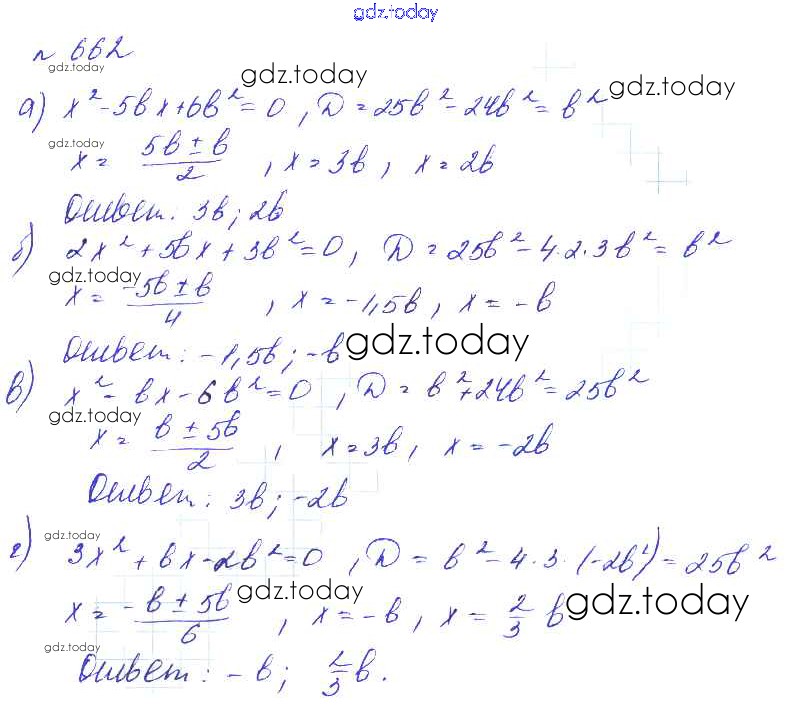 gdz.today
№ 662
gdz.today gdz.today
а) x² - 5bx + 6b² = 0, D = 25b² - 24b² = b² gdz.today
gdz.today x = (5b ± b)/2, x = 3b, x = 2b
Ответ: 3b; 2b
б) 2x² + 5bx + 3b² = 0, D = 25b² - 4·2·3b² = b²
gdz.today x = (-5b ± b)/4, x = -1,5b, x = -b
Ответ: -1,5b; -b gdz.today
в) x² - bx - 6b² = 0, D = b² + 24b² = 25b²
gdz.today x = (b ± 5b)/2, x = 3b, x = -2b
Ответ: 3b; -2b
gdz.today
г) 3x² + bx - 2b² = 0, D = b² - 4·3·(-2b²) = 25b²
x = (-b ± 5b)/6, gdz.today x = -b, x = 2/3 b gdz.today
gdz.today Ответ: -b; 2/3 b.